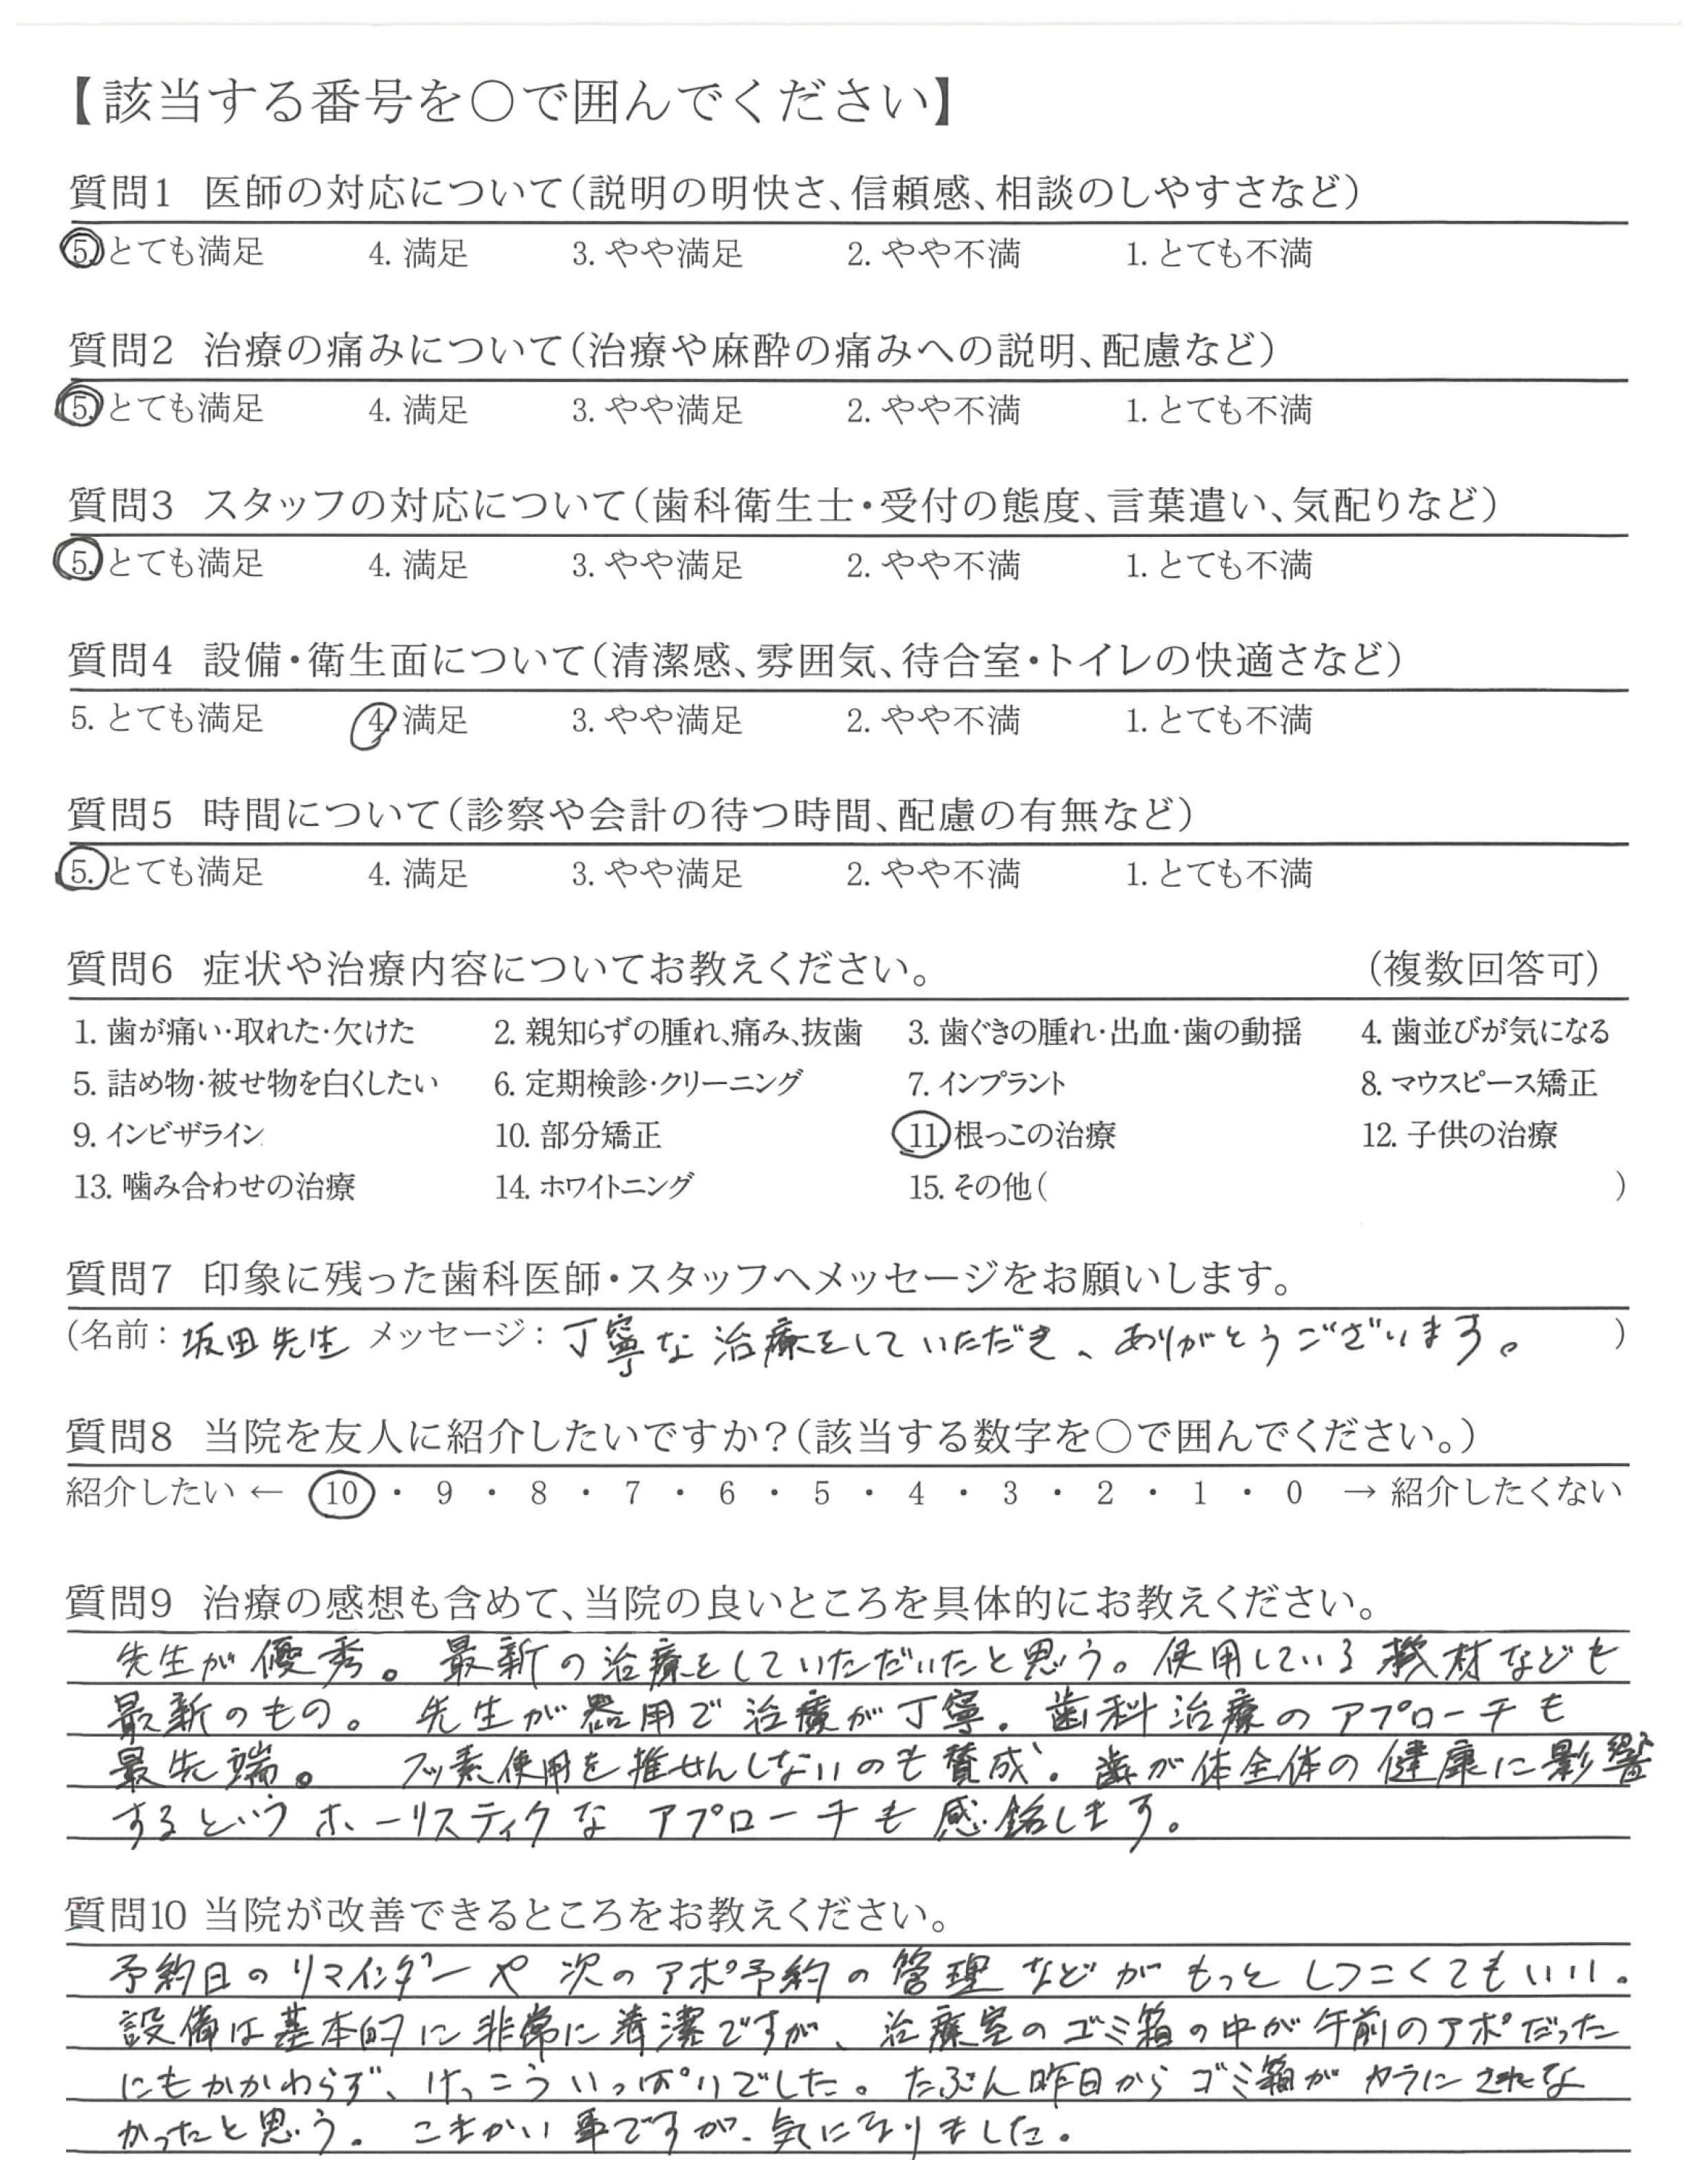 【該当する番号を○で囲んでください】
質問1 医師の対応について(説明の明快さ、信頼感、相談のしやすさなど)
5. とても満足 4. 満足 3. やや満足 2. やや不満 1. とても不満
質問2 治療の痛みについて(治療や麻酔の痛みへの説明、配慮など)
5. とても満足 4. 満足 3. やや満足 2. やや不満 1. とても不満
質問3 スタッフの対応について(歯科衛生士・受付の態度、言葉遣い、気配りなど)
5. とても満足 4. 満足 3. やや満足 2. やや不満 1. とても不満
質問4 設備・衛生面について(清潔感、雰囲気、待合室・トイレの快適さなど)
5. とても満足 4. 満足 3. やや満足 2. やや不満 1. とても不満
質問5 時間について(診察や会計の待つ時間、配慮の有無など)
5. とても満足 4. 満足 3. やや満足 2. やや不満 1. とても不満
質問6 症状や治療内容についてお教えください。 (複数回答可)
1. 歯が痛い・取れた・欠けた 2. 親知らずの腫れ、痛み、抜歯 3. 歯ぐきの腫れ・出血・歯の動揺 4. 歯並びが気になる
5. 詰め物・被せ物を白くしたい 6. 定期検診・クリーニング 7. インプラント 8. マウスピース矯正
9. インビザライン 10. 部分矯正 11. 根っこの治療 12. 子供の治療
13. 噛み合わせの治療 14. ホワイトニング 15. その他( )
質問7 印象に残った歯科医師・スタッフへメッセージをお願いします。
(名前: 坂田先生 メッセージ: 丁寧な治療をしていただき、ありがとうございます。 )
質問8 当院を友人に紹介したいですか?(該当する数字を○で囲んでください。)
紹介したい ← 10 ・ 9 ・ 8 ・ 7 ・ 6 ・ 5 ・ 4 ・ 3 ・ 2 ・ 1 ・ 0 → 紹介したくない
質問9 治療の感想も含めて、当院の良いところを具体的にお教えください。
先生が優秀。最新の治療をしていただいたと思う。使用している機材なども
最新のもの。先生が器用で治療が丁寧。歯科治療のアプローチも
最先端。フッ素使用を推せんしないのも賛成。歯が体全体の健康に影響
するというホーリスティクなアプローチも感銘します。
質問10 当院が改善できるところをお教えください。
予約日のリマインダーや次のアポ予約の管理などがもっとしつこくてもいい。
設備は基本的に非常に清潔ですが、治療室のゴミ箱の中が午前のアポだった
にもかかわらず、けっこういっぱいでした。たぶん昨日からゴミ箱がカラにされな
かったと思う。こまかい事ですが、気になりました。